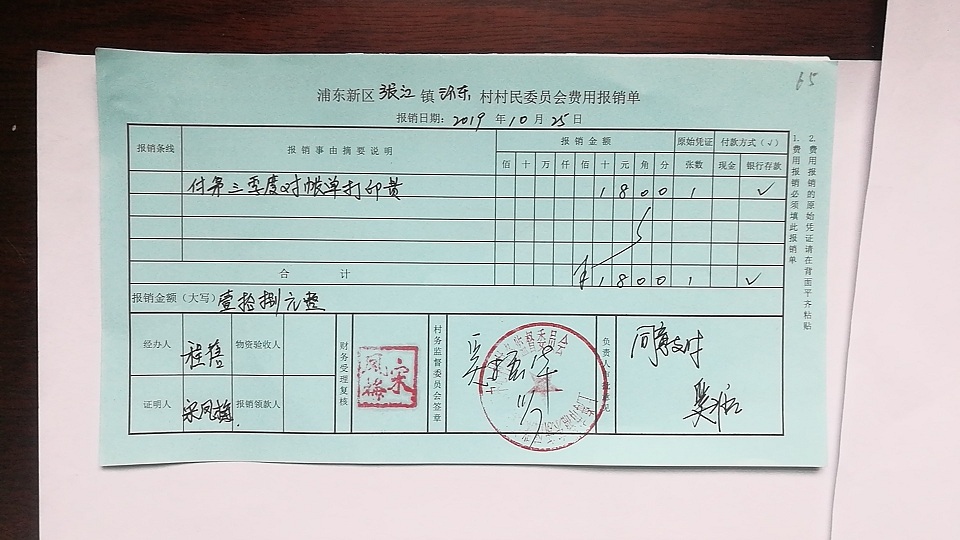 65
浦东新区 张江 镇 沔东 村村民委员会费用报销单
报销日期: 2019 年 10 月 25 日
报销条线 报销事由摘要说明 报销金额 原始凭证 付款方式(√)
佰 十 万 仟 佰 十 元 角 分 张数 现金 银行存款
付第三季度对帐单打印费 1 8 0 0 1 √
合计 ¥ 1 8 0 0 1 √
报销金额(大写) 壹拾捌元整
经办人 物资验收人
证明人 宋凤梅 报销领款人
财务受理复核
宋凤梅
村务监督委员会签章
11/7
负责人
同意支付
1.费用报销必须填此报销单
2.费用报销的原始凭证请在背面平齐粘贴